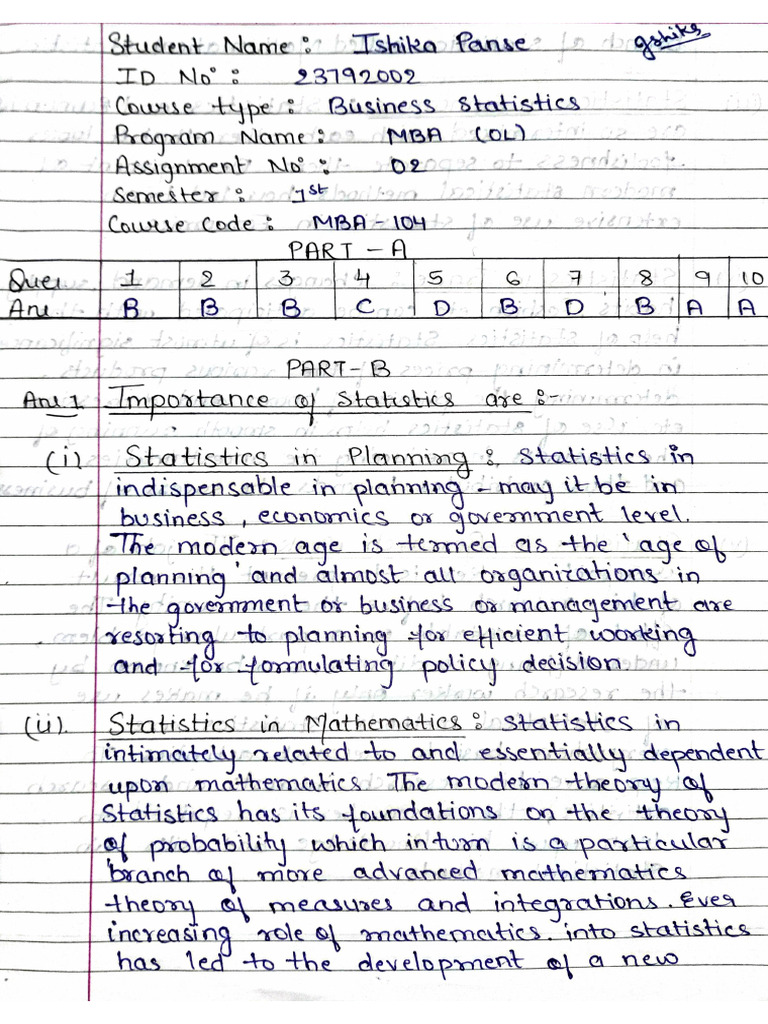 Student Name : Ishika Panse
ID No : 23792002
Course type : Business statistics
Program Name : MBA (OL)
Assignment No : 02
Semester : 1st
Course Code : MBA - 104
PART - A
Ques 1 2 3 4 5 6 7 8 9 10
Ans B B B C D B D B A A
PART - B
Ans 1. Importance of Statistics are :-
(i) Statistics in Planning : Statistics in
indispensable in planning - may it be in
business, economics or government level.
The modern age is termed as the 'age of
planning' and almost all organizations in
the government or business or management are
resorting to planning for efficient working
and for formulating policy decision.
(ii). Statistics in Mathematics : Statistics in
intimately related to and essentially dependent
upon mathematics. The modern theory of
Statistics has its foundations on the theory
of probability which in turn is a particular
branch of more advanced mathematics
theory of measures and integrations. Ever
increasing role of mathematics. into statistics
has led to the development of a new